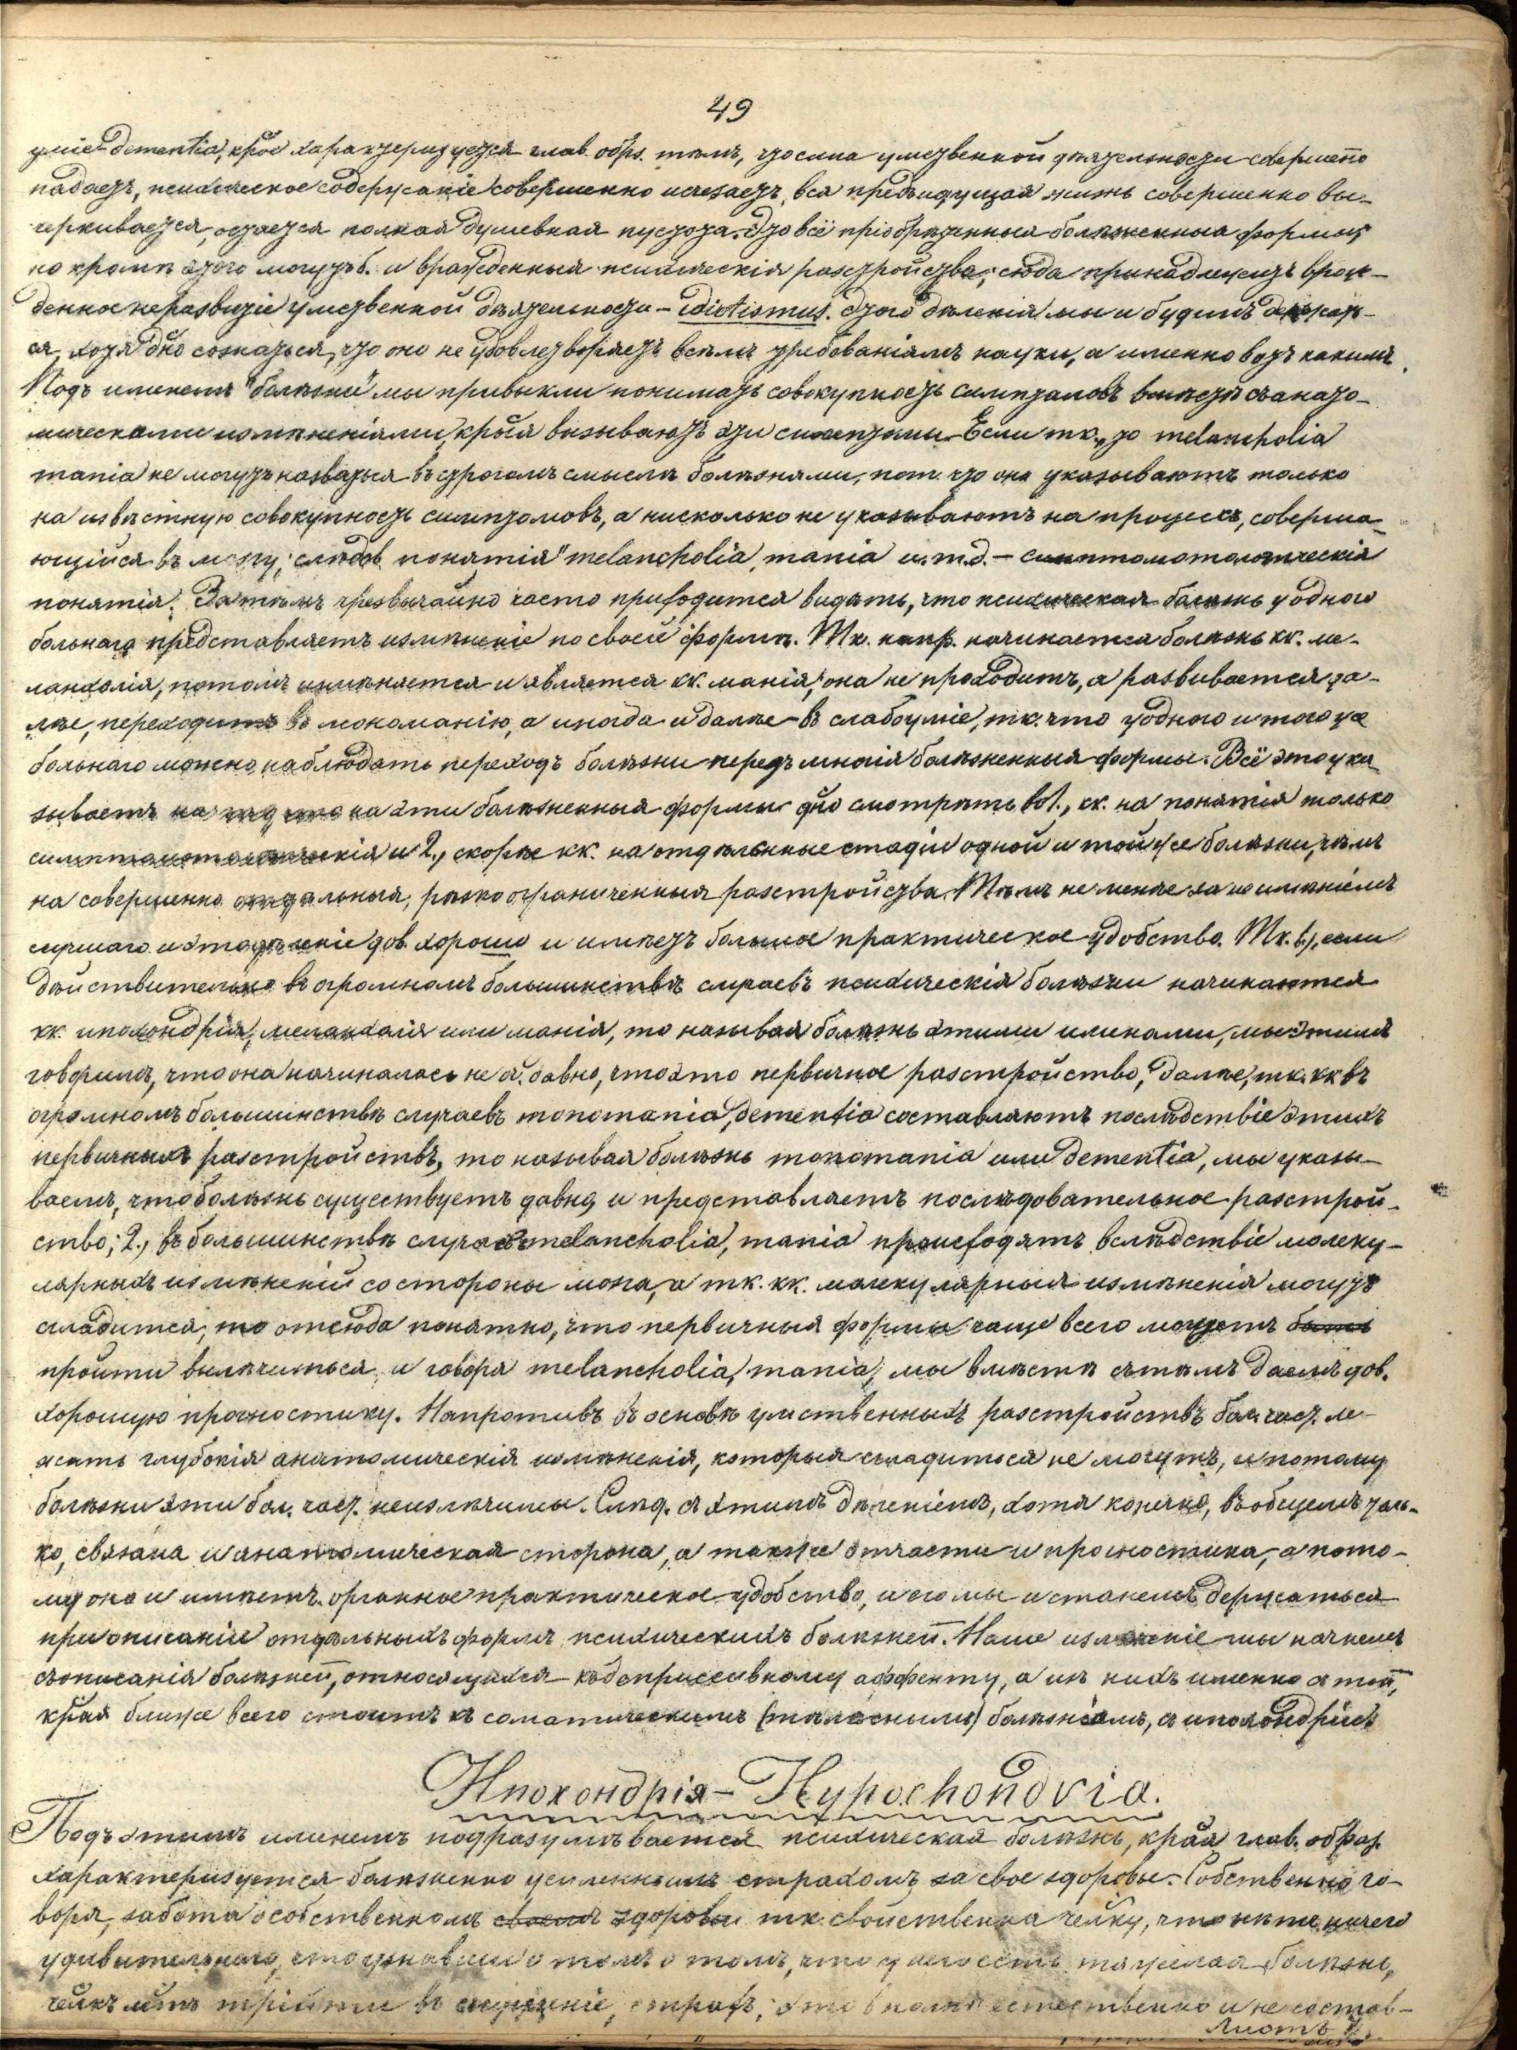 49
уміе – dementia, крое характеризуется глав. обрз. тѣмъ, что сила умственной дѣятельности совершено
падаетъ, психическое содержаніе совершенно исчезаетъ, вся предъидущая жизнь совершенно вы-
черкивается, остается полная душевная пустота. Это всё пріобрѣтенныя болѣзненныя формы,
но кромѣ этого могутъ б. и врожденныя психическія разстройства; сюда принадлежитъ врож-
денное неразвитіе умственной дѣятельности – idiotismus. Этого дѣленія мы и будимъ держат-
ся, хотя дно сознаться, что оно не удовлетворяетъ всѣмъ требованіямъ науки, а именно вотъ какимъ.
Подъ именемъ "болѣзни" мы привыкли понимать совокупность симптомовъ вмѣстѣ съ анато-
мическими измѣненіями, крыя вызываютъ эти симптомы. Если тк., то melancholia
mania не могутъ назваться въ строгомъ смыслѣ болѣзнями, пот. что онѣ указываютъ только
на извѣстную совокупность симптомовъ, а нисколько не указываютъ на процессъ, соверша-
ющійся въ мозгу; слѣдов. понятія "melancholia, mania и т.д. – симптоматологическія
понятія. Затѣмъ чрезвычайно часто приходится видѣть, что психическая болѣзнь у одного
больнаго представляетъ измѣненіе по своей формѣ. Тк. напр. начинается болѣзнь кк. ме-
ланхолія, потомъ измѣняется и является кк. манія; она не проходитъ, а развивается да-
лѣе, переходитъ въ мономанію, а иногда и далѣе – въ слабоуміе, тк. что у одного и того же
больнаго можно наблюдать переходъ болѣзни чрезъ многія болѣзненныя формы. Всё это ука
зываетъ на то, что на эти болѣзненныя формы дно смотрѣть во 1., кк. на понятія только
симптоматологическія и 2., скорѣе кк. на отдѣльные стадіи одной и той же болѣзни, чѣмъ
на совершенно отдѣльныя, рѣзко ограниченныя разстройства. Тѣмъ не менѣе за неимѣніемъ
лучшаго и это дѣленіе дов. хорошо и имѣетъ большое практическое удобство. Тк. 1., если
дѣйствительно въ огромномъ большинствѣ случаевъ психическія болѣзни начинаются
кк. ипохондрія, меланхолія или манія, то называя болѣзнь этими именами, мы этимъ
говоримъ, что она начиналась не давно, что это первичное разстройство; далѣе, тк. кк въ
огромномъ большинствѣ случаевъ monomania, dementia составляютъ послѣдствіе этихъ
первичныхъ разстройствъ, то называя болѣзнь monomania или dementia, мы указы-
ваемъ, что болѣзнь существуетъ давно, и представляетъ послѣдовательное разстрой-
ство; 2., въ большинствѣ случаевъ melancholia, mania происходятъ вслѣдствіе молеку-
лярныхъ измѣненій со стороны мозга, а тк. кк. молекулярныя измѣненія могутъ
сгладится, то отсюда понятно, что первичныя формы чаще всего могутъ быть
пройти вылѣчиться, и говоря melancholia, mania, мы вмѣстѣ съ тѣмъ даемъ дов.
хорошую прогностику. Напротивъ въ основѣ умственныхъ разстройствъ бол. част. ле-
жатъ глубокія анатомическія измѣненія, которыя сгладиться не могутъ, и потому
болѣзни эти бол. част. неизлѣчимы. Слѣд. съ этимъ дѣленіемъ, хотя конечно, въ общемъ толь-
ко, связана и анатомическая сторона, а также отчасти и прогностика, а пото-
му оно и имѣетъ огромное практическое удобство, и его мы и станемъ держаться
при описаніи отдѣльныхъ формъ психическихъ болѣзней. Наше изложеніе мы начнемъ
съ описанія болѣзней, относящихся къ депрессивному аффекту, а изъ нихъ именно съ той,
края ближе всего стоитъ къ соматическимъ (тѣлеснымъ) болѣзнямъ, съ ипохондріи
Ипохондрія – Hypochondria.
Подъ этимъ именемъ подразумѣвается психическая болѣзнь, края глав. образ.
характеризуется болѣзненно усиленнымъ страхомъ за свое здоровье. Собственно го-
воря, забота о собственномъ своемъ здоровьи тк. свойственна челку, что нѣтъ ничего
удивительнаго, что узнавши о томъ о томъ, что у него есть тяжелая болѣзнь,
челкъ мжтъ прійти въ смущеніе, страхъ; это вполнѣ естественно и не состав-
Листъ 7.